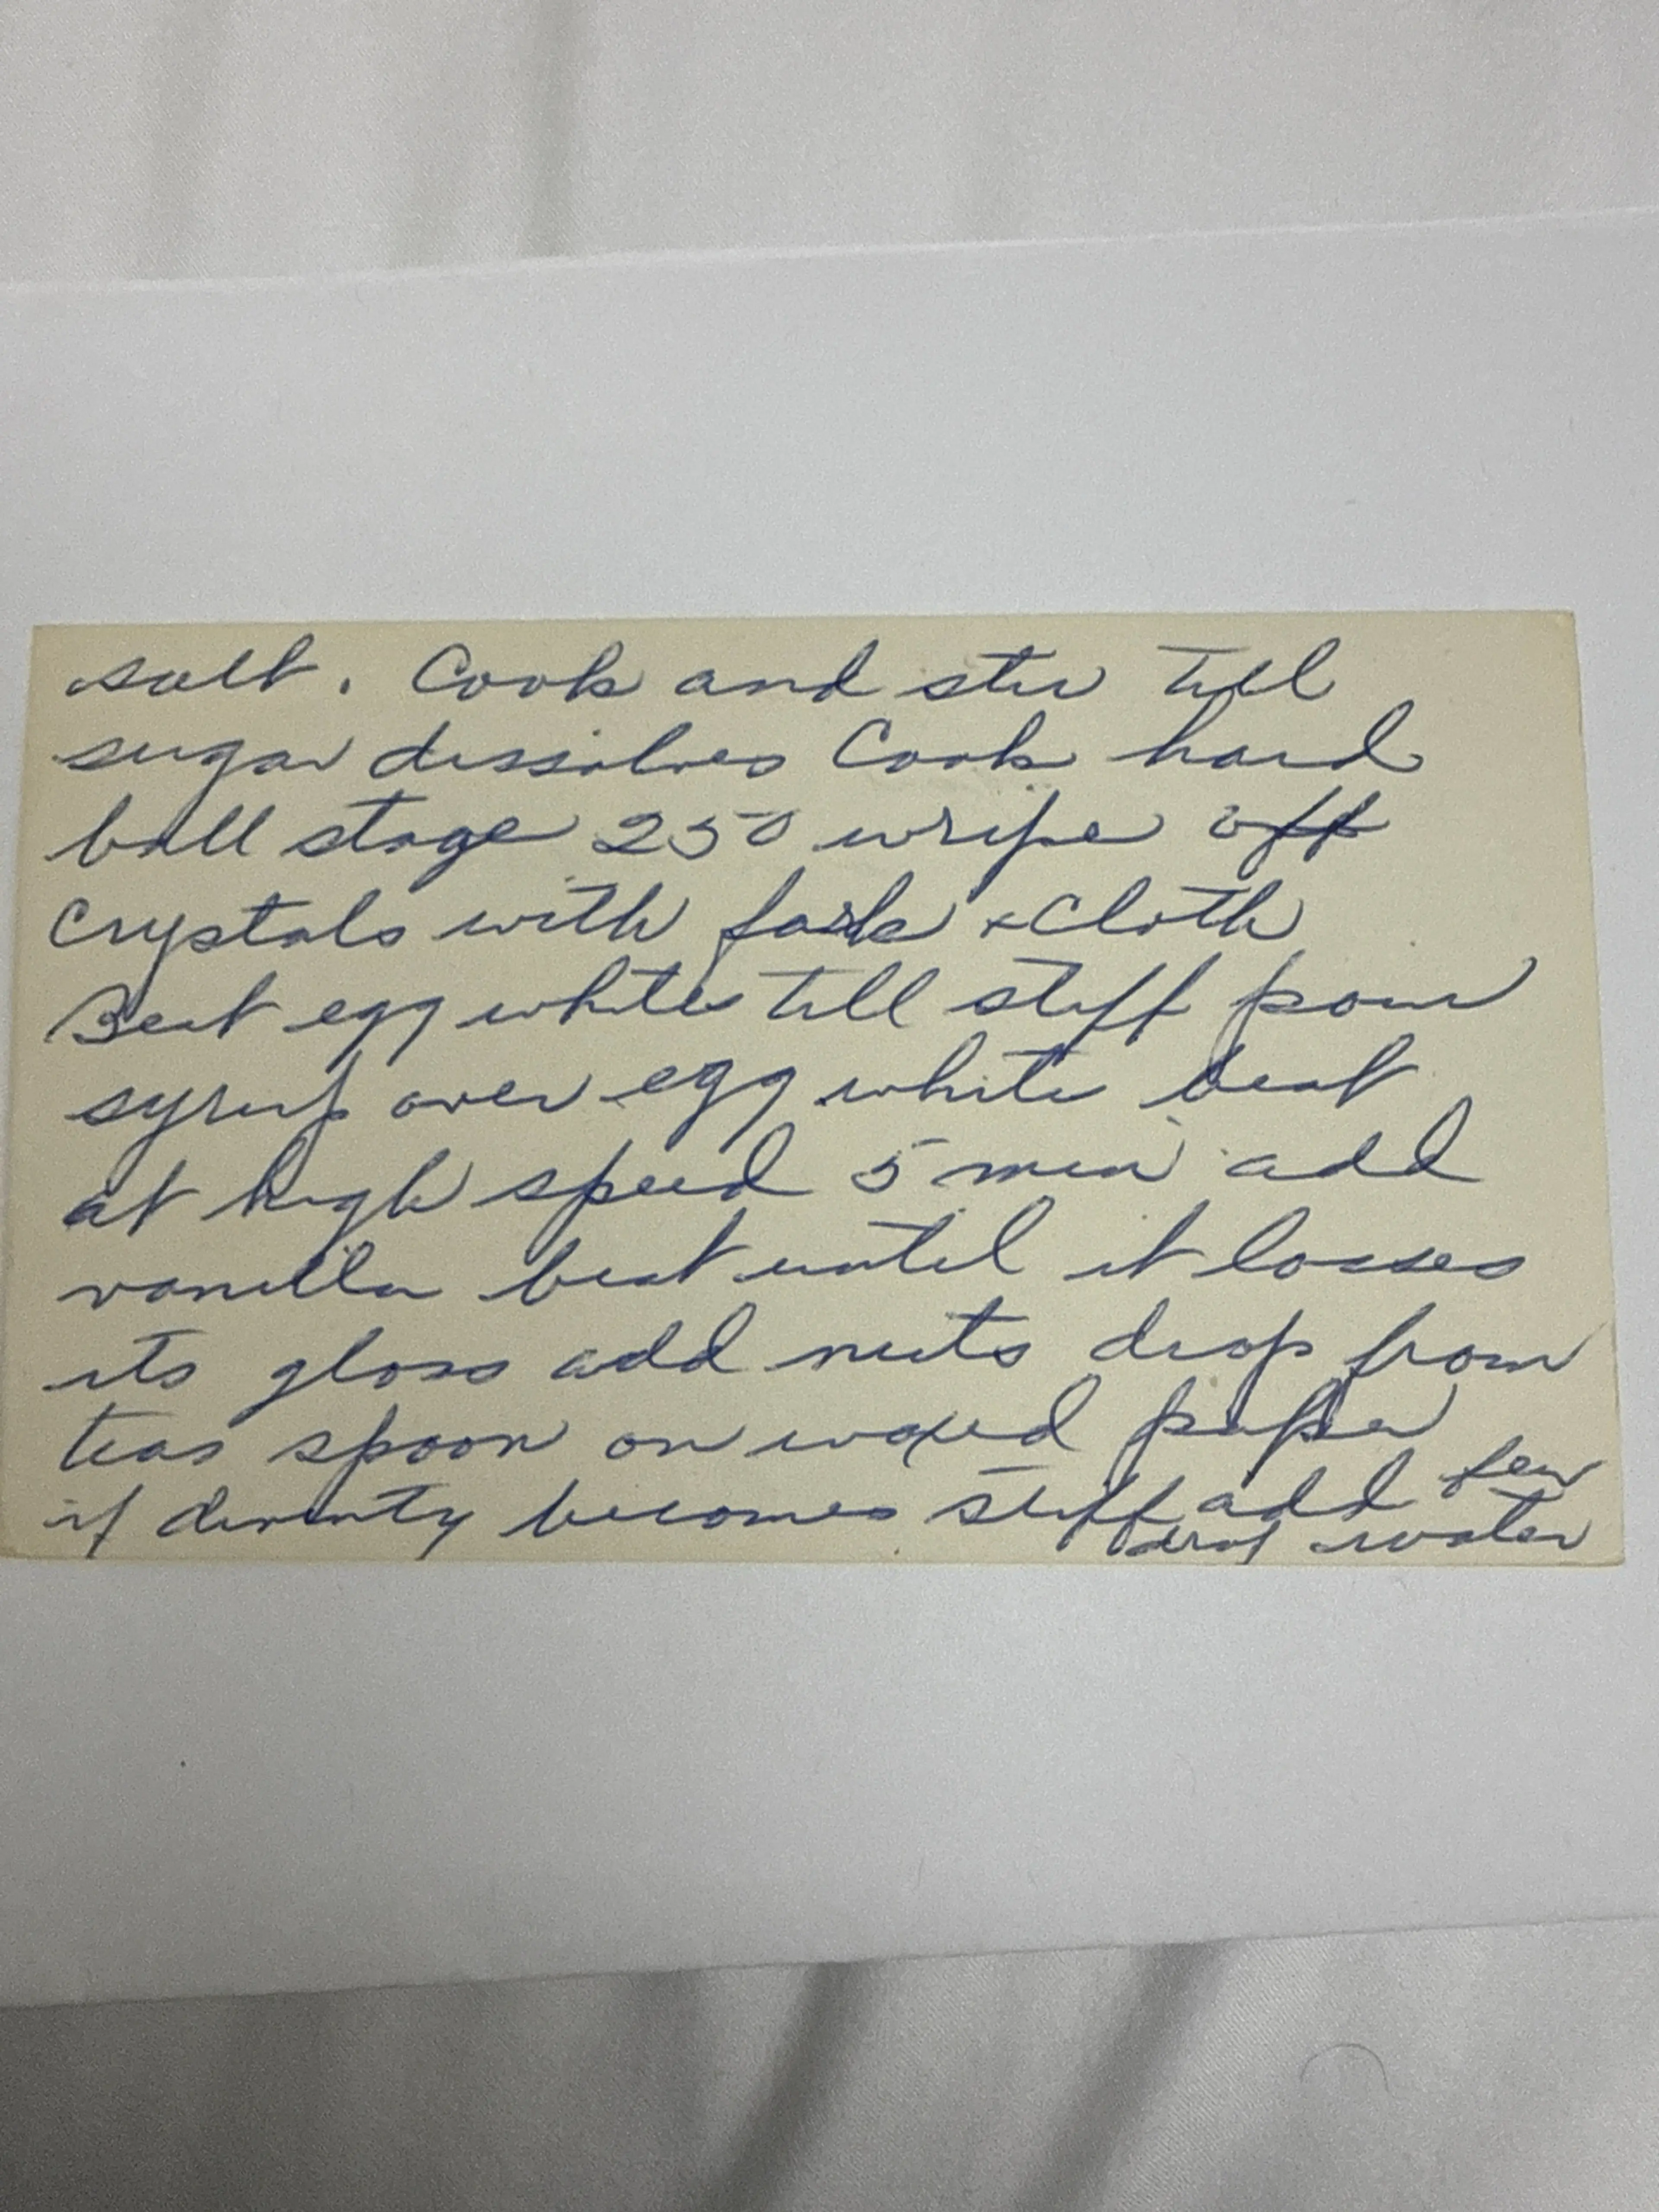 salt. Cook and stir till
sugar dissolves Cook hard
ball stage 250 wripe off
Crystals with fork & Cloth
Beat egg whites till stiff pour
syrup over egg white beat
at high speed 5 min add
vanilla beat until it losses
its gloss add nuts drop from
teas spoon on waxed paper
if divinty becomes stiff add few
drop water